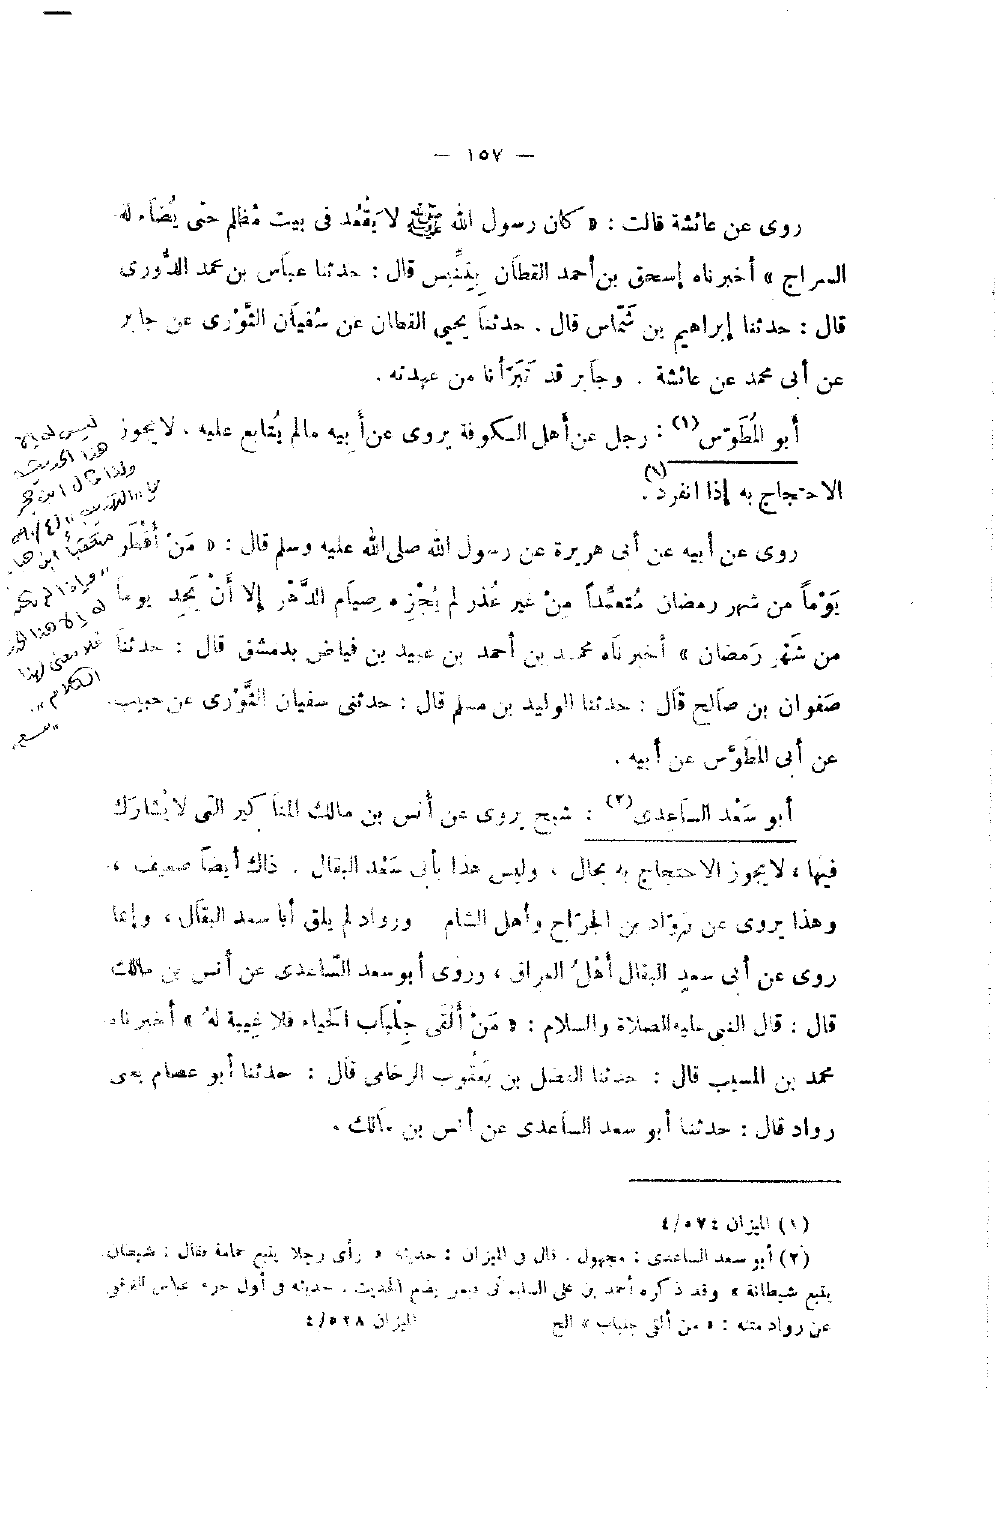 — ١٥٧ —
روى عن عائشة قالت : « كان رسول الله ﷺ لا يَقْعُد فى بيت مُظلم حتى يُضَاء له
السراج » أخبرناه إسحق بن أحمد القطان بِتِنِّيس قال : حدثنا عباس بن محمد الدُّورى
قال : حدثنا إبراهيم بن شَمَّاس قال . حدثنا يحيى القطان عن سُفيان الثَّوْرى عن جابر
عن أبى محمد عن عائشة . وجابر قد تَبَرَّأنا من عهدته .
أبو المُطَوِّس (١) : رجل من أهل الكوفة يروى عن أبيه مالم يُتابع عليه . لا يجوز
الاحتجاج به إذا انفرد (١) .
روى عن أبيه عن أبى هريرة عن رسول الله صلى الله عليه وسلم قال : « مَنْ أَفْطَر
يَوْماً من شهر رمضان مُتعمِّداً مِنْ غير عُذر لم يُجْزِه صِيَام الدَّهْر إلا أَنْ يَجِد يوماً
من شَهْرِ رَمضان » أخبرناه محمد بن أحمد بن عبيد بن فياض بدمشق قال : حدثنا
صَفوان بن صالح قال : حدثنا الوليد بن مسلم قال : حدثنى سفيان الثَّوْرى عن حبيب
عن أبى المطَوِّس عن أبيه .
أبو سَعْد الساعدى (٢) : شيخ يروى عن أنس بن مالك المناكير التى لا يُشارَك
فيها ، لا يجوز الاحتجاج به بحال ، وليس هذا بأبى سَعْد البقال . ذاك أيضاً ضعيف ،
وهذا يروى عن رَوَّاد بن الجرّاح وأهل الشام ورواد لم يلق أبا سعد البقال ، وإنما
روى عن أبى سعدٍ البقال أهْلُ العراق ، وروى أبو سعد السَّاعدى عن أنس بن مالك
قال : قال النبى عليه الصلاة والسلام : « مَنْ أَلْقَى جِلْبَاب الحَياء فلا غِيبة لهُ » أخبرناه
محمد بن المسيب قال : حدثنا الفضل بن يَعْقُوب الرخامى قال : حدثنا أبو عصام يعنى
رواد قال : حدثنا أبو سعد الساعدى عن أنس بن مالك .
ليس له إلا
هذا الحديث
ولذا قال ابن حجر
متعقباً ابن حبان
وإذا لم يكن
له إلا هذا
فلا معنى لهذا
الكلام
(١) الميزان ٤/٥٧٤
(٢) أبو سعد الساعدى : مجهول . قال فى الميزان : حديثه « رأى رجلا يتبع حمامة فقال : شيطان
يتبع شيطانة » وقد ذكره أحمد بن على السليمانى فيمن يضع الحديث . حديثه فى أول جزء عباس الترقفى
عن رواد متنه : « من ألقى جلباب » الخ الميزان ٤/٥٢٨